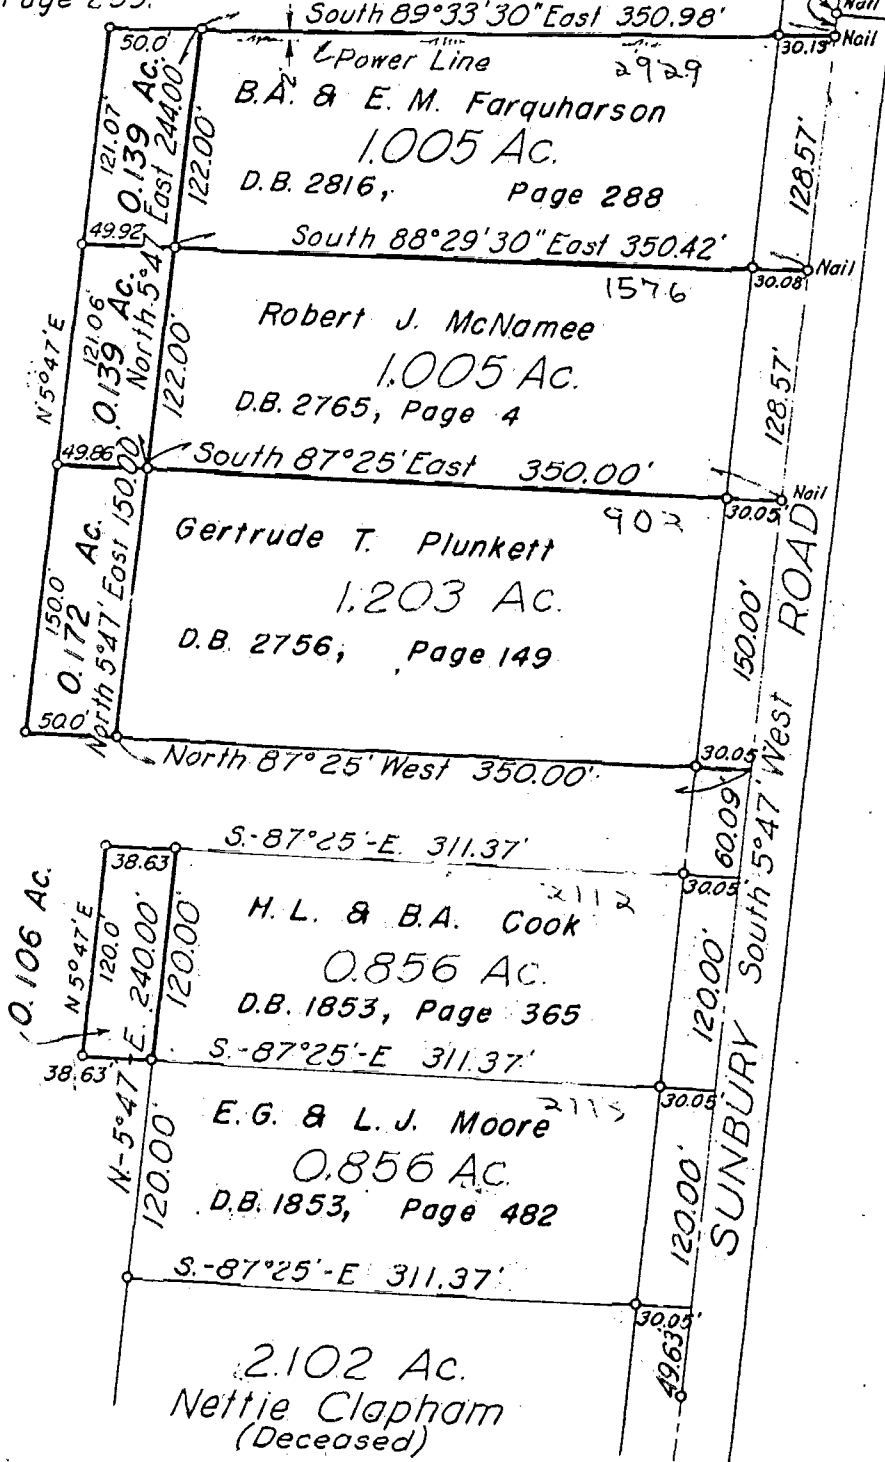 South 89°33'30"East 350.98'
Nail
50.0'
30.13'
Nail
Power Line
2'
2929
B.A. & E. M. Farquharson
1.005 Ac.
D.B. 2816, Page 288
121.07'
0.139 Ac.
North 5°47' East 244.00'
122.00'
128.57'
49.92'
South 88°29'30"East 350.42'
30.08'
Nail
1576
Robert J. McNamee
1.005 Ac.
D.B. 2765, Page 4
N 5°47'E
121.06'
0.139 Ac.
122.00'
128.57'
49.86'
South 87°25'East 350.00'
30.05'
Nail
902
Gertrude T. Plunkett
1.203 Ac.
D.B. 2756, Page 149
150.0'
0.172 Ac.
North 5°47' East 150.00'
150.00'
50.0'
North 87°25' West 350.00'
30.05'
60.09'
South 5°47' West
SUNBURY ROAD
S.-87°25'-E. 311.37'
38.63'
30.05'
2112
H. L. & B.A. Cook
0.856 Ac.
D.B. 1853, Page 365
0.106 Ac.
N 5°47'E
120.0'
N.-5°47'-E. 240.00'
120.00'
120.00'
S.-87°25'-E 311.37'
38.63'
30.05'
E.G. & L. J. Moore
0.856 Ac.
D.B. 1853, Page 482
120.00'
120.00'
S.-87°25'-E 311.37'
30.05'
49.63'
2.102 Ac.
Nettie Clapham
(Deceased)